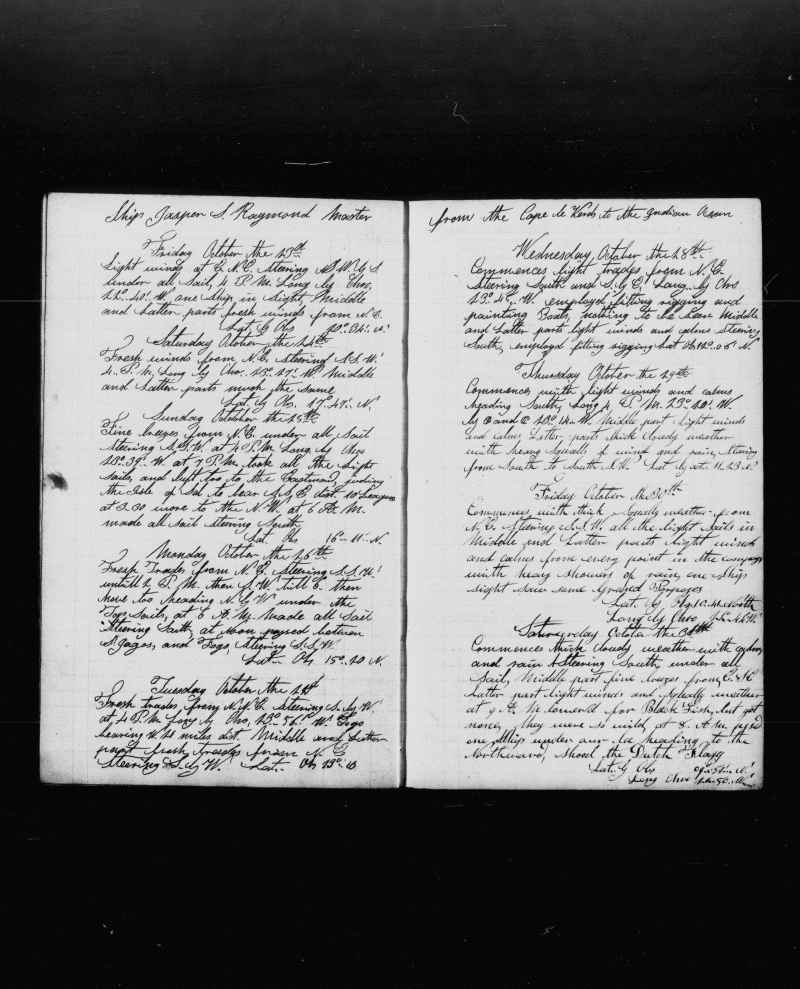 Ship Jasper S. Raymond Master
Friday October the 23rd
Light winds at E. N. E. Steering
under all Sail, 4 P. M. Long by Chro,
22°.. 40'. W, one Ship in Sight, Middle
and Latter parts fresh winds from N. E.
Lat. by Obs 20°. 04'. N
Saturday October the 24th
Fresh winds from N. E. Steering S. S. W.
4.. P. M. Long by Chro. 23°. 27'. W. Middle
and Latter parts much the same
Lat. by Obs. 17°. 47'. N.
Sunday October the 25th
Fine breezes from N. E. under all Sail
Steering S. S. W. at 4 P. M. Long by Chro
23°. 39'. W. at 7 P. M. took all the light
sails, and luft too to the Eastward, judging
the Isle of Sal to bear dist. 10 Leagues
at 2.30 wore to the N. W. at 6 A. M.
made all sail Steering South
Lat Obs 16°.. 11'.. N.
Monday October the 26th
Fresh Trades from N. E. Steering S. S. W.
untill 2 P. M. then S. W till 6. then
hove too heading N. by W under the
Top Sails, at 6 A. M. Made all Sail
Steering South, at Noon passed between
St Jagos, and Fogo, Steering S. S. W.
Lat. Obs 15°. 20 N.
Tuesday October the
Fresh trades from N. E. Steering S. by W
at 4 P. M Long by Chro, W. Fogo
bearing miles dist. Middle and Latter
part fresh trades from N. E
Steering S. by W. Lat. Obs 13°.
from the Cape de Verds to the Indian Ocean
Wednesday, October the 28th
Commences light trades from N. E.
Steering South and S. by E, Long. by Chro
W. employd fitting rigging and
painting Boats, nothing to be Seen Middle
and Latter parts light winds and calms Steering
South, employd fitting rigging Lat Obs 12°. 06' N.
Thursday October the 29th
Commences with light winds and calms
heading South, Long 4 P. M. 23°. 20'. W.
by Middle part light winds
and calms Latter parts thick Cloudy weather
with heavy Squalls of wind and rain, Steering
from South to South S. W. Lat by Obs. 11. 23 N
Friday October the 30th
Commences with thick Squally weather from
N. E. Steering S. S. W. all the light Sails in
Middle and Latter parts light winds
and calms from every point in the compass
with heavy showers of rain, one Ship
sight saw some Grand Porpoges
Lat. by Obs North
Long by Chro
Saturday October the 31st
Commences thick cloudy weather with calms,
and rain Steering South, under all
Sail, Middle part fine breezes from
Latter part light winds and Squally weather
at 9 A. M lowerd for Black Fish, but got
none, they were so wild, at 8. A. M.
one Ship under our lee heading to the
Northward, Showd the Dutch Flagg
Lat. by Obs
Long Chro